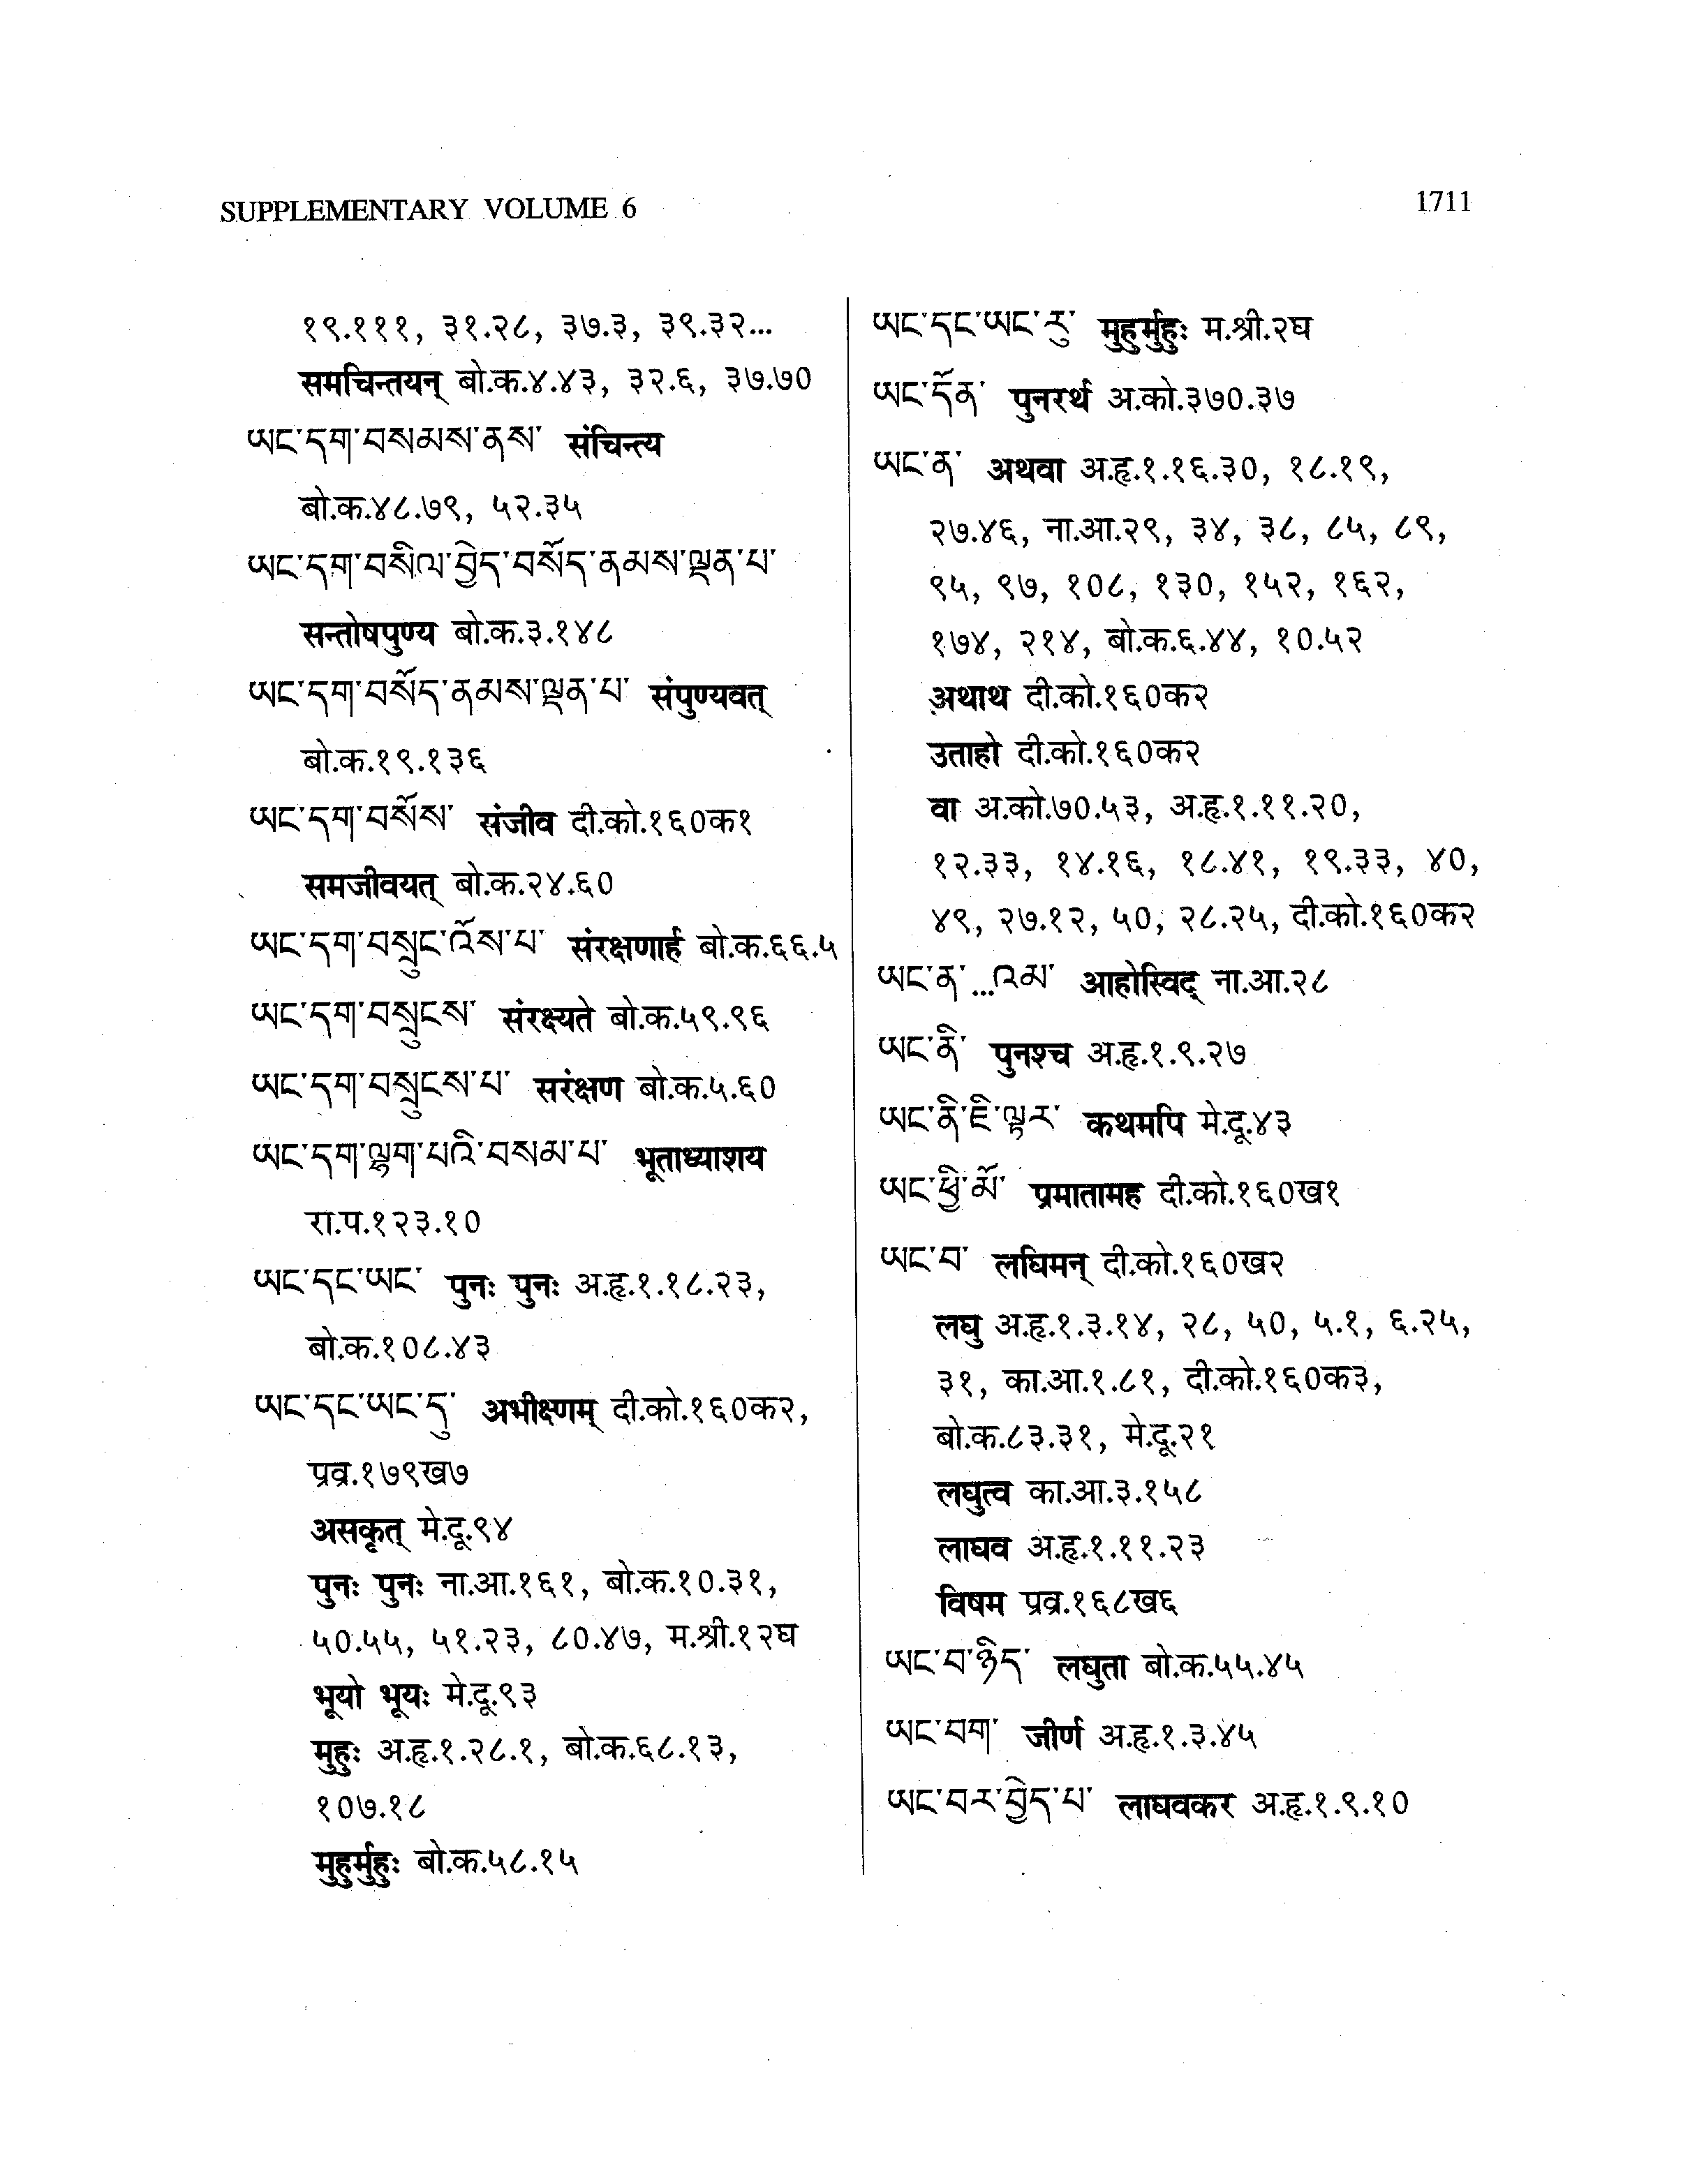 SUPPLEMENTARY VOLUME 6
1711
१९.१११, ३१.२८, ३७.३, ३९.३२...
समचिन्तयन् बो.क.४.४३, ३२.६, ३७.७०
ཡང་དག་བསམས་ནས་ संचिन्त्य
बो.क.४८.७९, ५२.३५
ཡང་དག་བསིལ་བྱེད་བསོད་ནམས་ལྡན་པ་
सन्तोषपुण्य बो.क.३.१४८
ཡང་དག་བསོད་ནམས་ལྡན་པ་ संपुण्यवत्
बो.क.१९.१३६
ཡང་དག་བསོས་ संजीव दी.को.१६०क१
समजीवयत् बो.क.२४.६०
ཡང་དག་བསྲུང་འོས་པ་ संरक्षणार्ह बो.क.६६.५
ཡང་དག་བསྲུངས་ संरक्ष्यते बो.क.५९.९६
ཡང་དག་བསྲུངས་པ་ सरंक्षण बो.क.५.६०
ཡང་དག་ལྷག་པའི་བསམ་པ་ भूताध्याशय
रा.प.१२३.१०
ཡང་དང་ཡང་ पुनः पुनः अ.हृ.१.१८.२३,
बो.क.१०८.४३
ཡང་དང་ཡང་དུ་ अभीक्ष्णम् दी.को.१६०क२,
प्रव्र.१७९ख७
असकृत् मे.दू.९४
पुनः पुनः ना.आ.१६१, बो.क.१०.३१,
५०.५५, ५१.२३, ८०.४७, म.श्री.१२घ
भूयो भूयः मे.दू.९३
मुहुः अ.हृ.१.२८.१, बो.क.६८.१३,
१०७.१८
मुहुर्मुहुः बो.क.५८.१५
ཡང་དང་ཡང་རུ་ मुहुर्मुहुः म.श्री.२घ
ཡང་དོན་ पुनरर्थ अ.को.३७०.३७
ཡང་ན་ अथवा अ.हृ.१.१६.३०, १८.१९,
२७.४६, ना.आ.२९, ३४, ३८, ८५, ८९,
९५, ९७, १०८, १३०, १५२, १६२,
१७४, २१४, बो.क.६.४४, १०.५२
अथाथ दी.को.१६०क२
उताहो दी.को.१६०क२
वा अ.को.७०.५३, अ.हृ.१.११.२०,
१२.३३, १४.१६, १८.४१, १९.३३, ४०,
४९, २७.१२, ५०, २८.२५, दी.को.१६०क२
ཡང་ན་...འམ་ आहोस्विद् ना.आ.२८
ཡང་ནི་ पुनश्च अ.हृ.१.९.२७
ཡང་ནི་ཇི་ལྟར་ कथमपि मे.दू.४३
ཡང་ཕྱི་མོ་ प्रमातामह दी.को.१६०ख१
ཡང་བ་ लघिमन् दी.को.१६०ख२
लघु अ.हृ.१.३.१४, २८, ५०, ५.१, ६.२५,
३१, का.आ.१.८१, दी.को.१६०क३,
बो.क.८३.३१, मे.दू.२१
लघुत्व का.आ.३.१५८
लाघव अ.हृ.१.११.२३
विषम प्रव्र.१६८ख६
ཡང་བ་ཉིད་ लघुता बो.क.५५.४५
ཡང་བག་ जीर्ण अ.हृ.१.३.४५
ཡང་བར་བྱེད་པ་ लाघवकर अ.हृ.१.९.१०